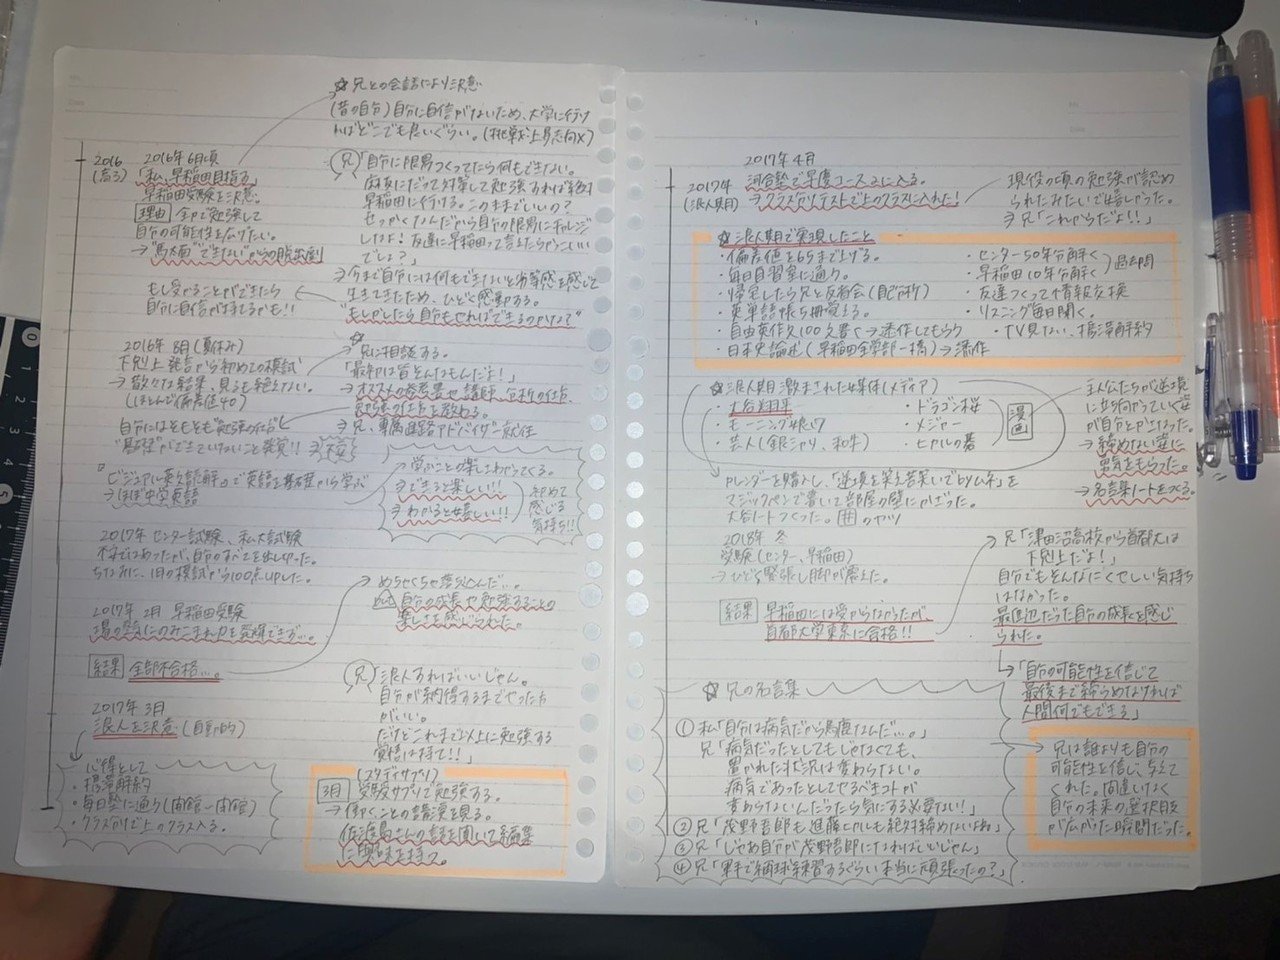 ☆兄との会話により決意
(昔の自分) 自分に自信がないため、大学に行け
ればどこでも良いぐらい。(挑戦・上昇志向×)
2016
(高3)
2016年6月頃
「私、早稲田目指す」
早稲田受験を決意。
理由 全力で勉強して
自分の可能性を広げたい。
→"馬鹿""できない"からの脱出劇
もし受かることができたら
自分に自信が持てるかも!!
兄「自分に限界つくってたら何もできない。
麻友にだって対策して勉強すれば絶対
早稲田に行ける。このままでいいの?
せっかくなんだから自分の限界にチャレンジ
してみよ! 友達に早稲田って言えたらかっこいい
でしょ?」
→今まで自分には何もできないと劣等感を感じて
生きてきたため、ひどく感動する。
"もしかしたら自分もやればできるのかな"
2016年8月(夏休み)
下剋上発言から初めての模試
→散々な結果、見るも絶えない。
(ほとんど偏差値40)
自分にはそもそも"勉強の仕方"
"基礎"ができていないこと発覚!!
☆兄に相談する。
「最初は皆そんなもんだよ!」
→オススメの参考書や講師、分析の仕方、
勉強の仕方を教わる。
→兄、専属進路アドバイザー就任
『ビジュアル英文読解』で英語を基礎から学ぶ
→ほぼ中学英語
学ぶことの楽しさわかってくる。
→できると楽しい!!
→わかると嬉しい!!
初めて
感じる
気持ち!!
2017年 センター試験、私大試験
不安ではあったが、自分のすべてを出し切った。
ちなみに、1回の模試から100点UPした。
2017年 2月 早稲田受験
場の空気にのみこまれ力を発揮できず…。
結果 全部不合格…。
めちゃくちゃ落ち込んだ…。
but 自分の成長や勉強することの
楽しさを感じられた。
2017年 3月
浪人を決意(自発的)
兄 浪人すればいいじゃん。
自分が納得するまでやった方
がいい。
だけどこれまで以上に勉強する
覚悟は持て!!
心得として
・携帯解約
・毎日塾に通う(開館〜閉館)
・クラス分けで上のクラス入る。
(スタディサプリ)
3月 受験サプリで勉強する。
→働くことの講演を見る。
佐渡島さんの話を聞いて編集
に興味を持つ。
2017年
(浪人期)
2017年4月
河合塾で早慶コースに入る。
→クラス分けテストで上のクラスに入れた!
現役の頃の勉強が認め
られたみたいで嬉しかった。
⇒兄「これからだよ!!」
☆浪人期で実現したこと
・偏差値を65まで上げる。
・毎日自習室に通う。
・帰宅したら兄と反省会(自己分析)
・英単語帳5冊覚える。
・自由英作文100文書く→添削してもらう
・日本史論述(早稲田全学部・一橋)→添削
・センター50年分解く
・早稲田10年分解く
過去問
・友達つくって情報交換
・リスニング毎日聞く。
・TV見ない、携帯解約
☆浪人期激励された媒体(メディア)
・大谷翔平
・モーニング娘。'17
・芸人(銀シャリ、和牛)
・ドラゴン桜
・メジャー
・ヒカルの碁
漫画
主人公たちが逆境
に立ち向かっていく姿
が自分と重なった。
→諦めない姿に
勇気をもらった。
→名言集ノートをつくる。
カレンダーを購入し、「逆境を笑え 苦笑いで by ムネ」を
マジックペンで書いて部屋の壁にかざった。
大谷ノートつくった。囲のヤツ
2018年 冬
受験(センター、早稲田)
→ひどく緊張し脚が震えた。
結果 早稲田には受からなかったが、
首都大学東京に合格!!
兄「津田沼高校から首都大は
下剋上だよ!」
自分でもそんなにくやしい気持ち
はなかった。
最底辺だった自分の成長を感じ
られた。
「自分の可能性を信じて
最後まで諦めなければ
人間何でもできる」
☆兄の名言集
① 私「自分は病気だから馬鹿なんだ…。」
兄「病気だったとしてもしゃなくても、
置かれた状況は変わらない。
病気であったとしてやるべきコトが
変わらないんだったら気にする必要ない!!」
② 兄「茂野吾郎も進藤ヒカルも絶対諦めないよね」
③ 兄「じゃあ自分が茂野吾郎になればいいじゃん」
④ 兄「軍手で補球練習するぐらい本当に頑張ったの?」
兄は誰よりも自分の
可能性を信じ、与えて
くれた。間違いなく
自分の未来の選択肢
が広がった瞬間だった。